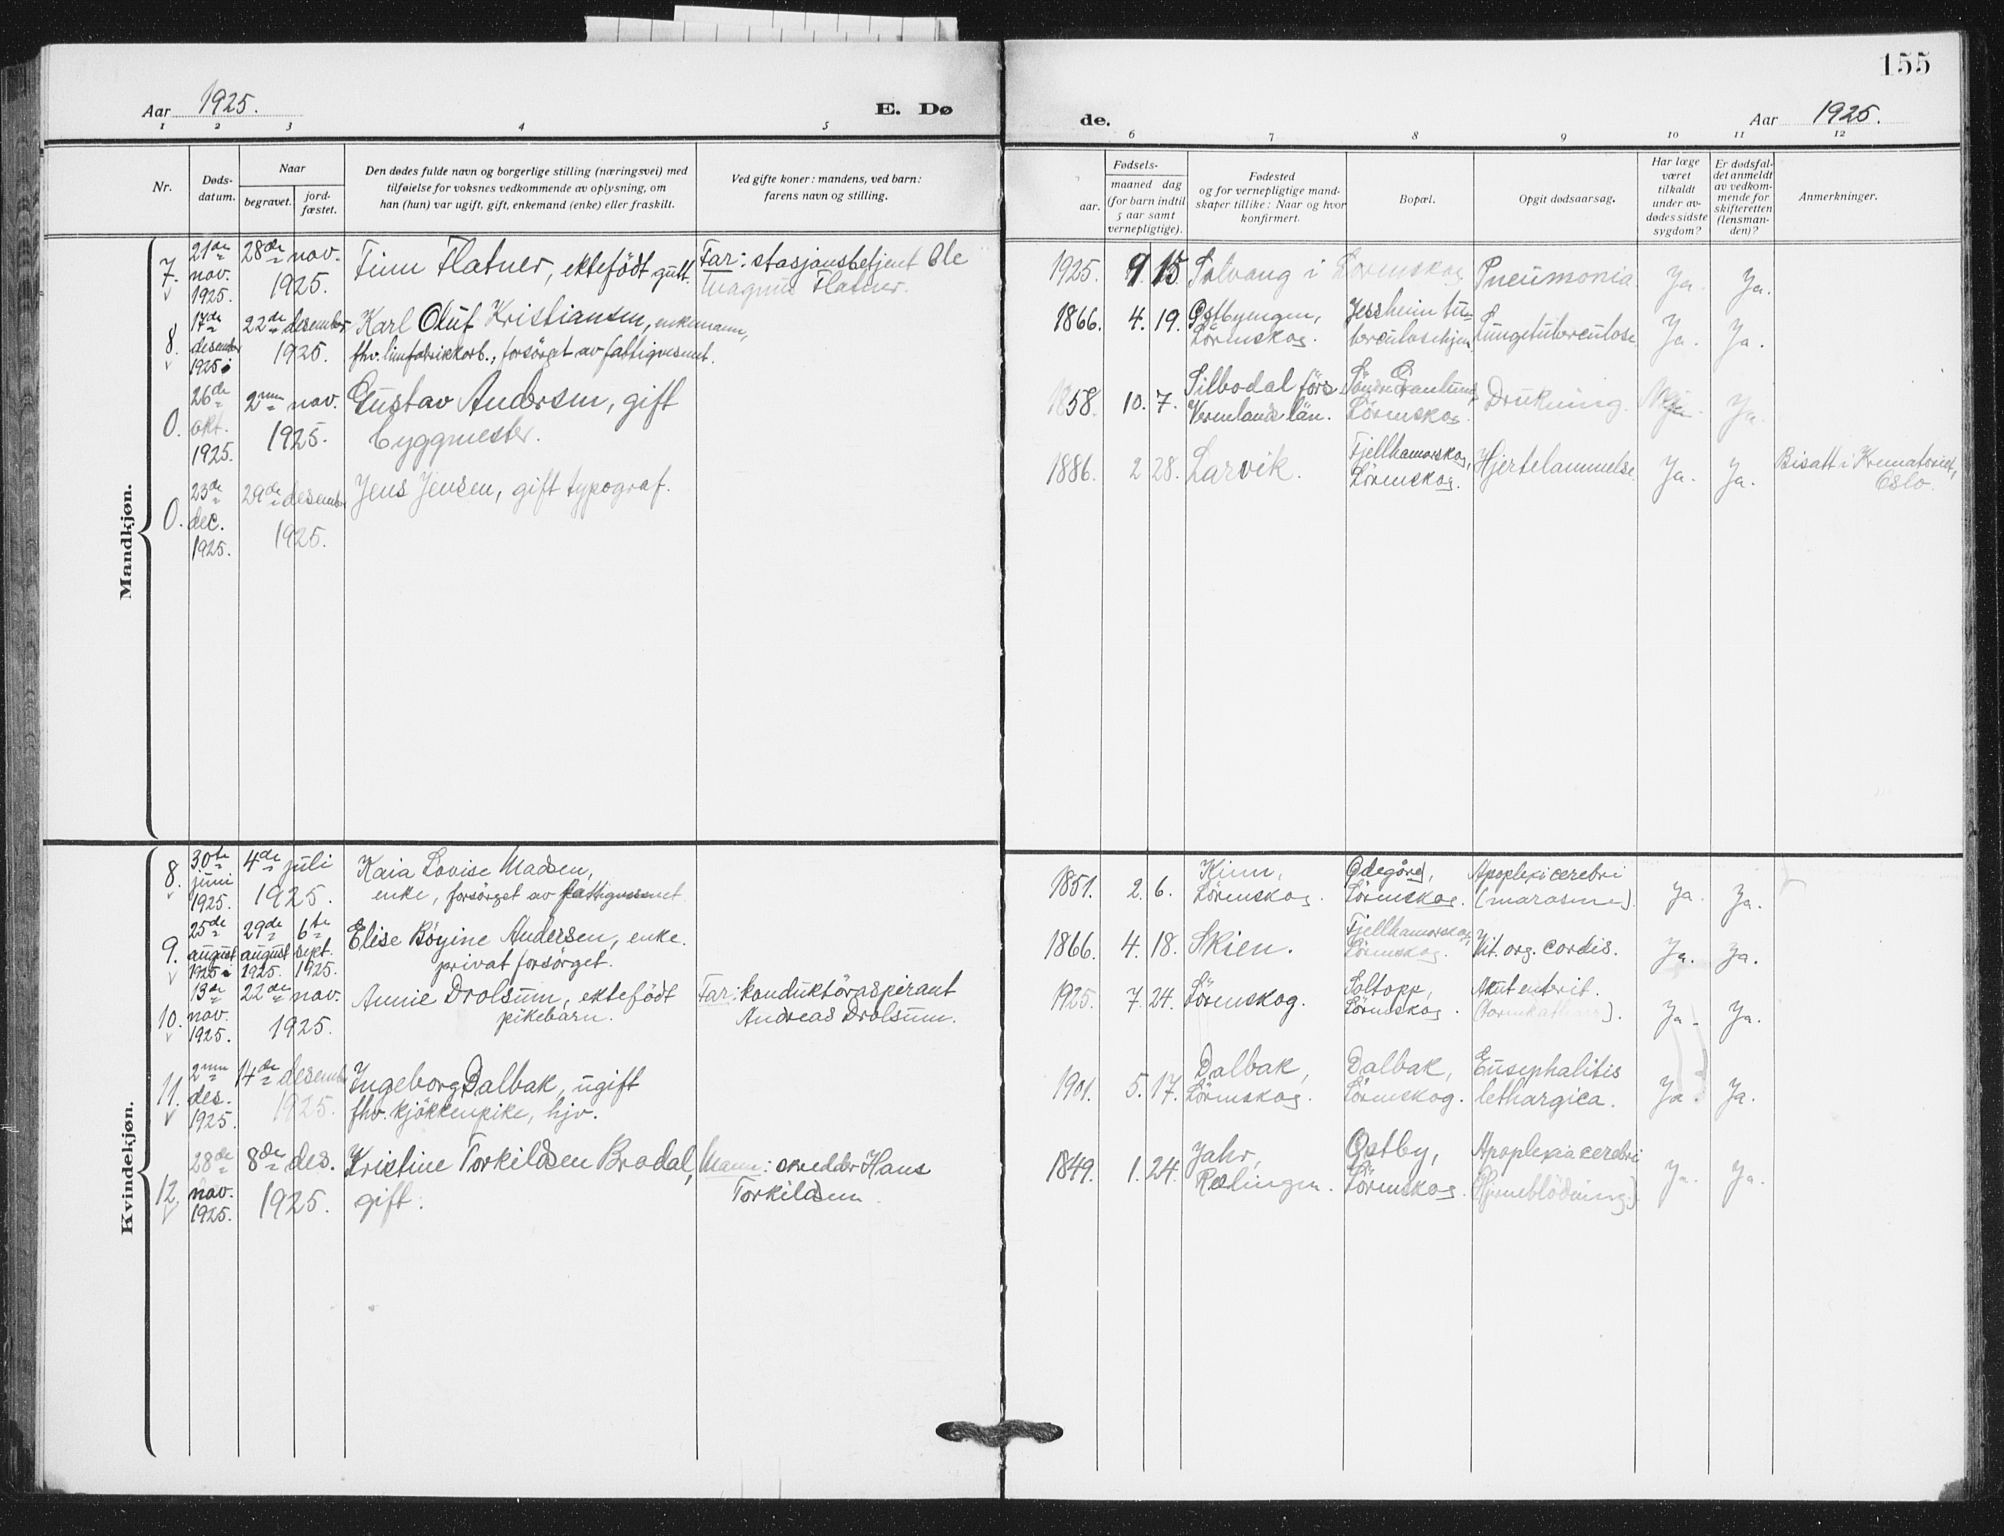 155
Aar 1925.
E. Døde.
Aar 1925.
1 2 3 4 5 6 7 8 9 10 11 12
Nr.
Døds-
datum.
Naar
begravet.
jord-
fæstet.
Den dødes fulde navn og borgerlige stilling (næringsvei) med
tilføielse for voksnes vedkommende av oplysning, om
han (hun) var ugift, gift, enkemand (enke) eller fraskilt.
Ved gifte koner: mandens, ved barn:
farens navn og stilling.
Fødsels-
aar.
maaned dag
(for barn indtil
5 aar samt
vernepligtige).
Fødested
og for vernepligtige mand-
skaper tillike: Naar og hvor
konfirmert.
Bopæl.
Opgit dødsaarsag.
Har læge
været
tilkaldt
under av-
dødes sidste
sygdom?
Er dødsfal-
det anmeldt
av vedkom-
mende for
skifteretten
(lensman-
den)?
Anmerkninger.
Mandkjøn.
7. 21de nov. 1925. 28de nov. 1925. Finn Flatner, ektefödt gutt. Far: stasjonsbetjent Ole
Magnus Flatner. 1925. 9. 15. Solvang i Lörenskog Pneumonia Ja. Ja.
8. 17de desember 1925. 22de desember 1925. Karl Oluf Kristiansen, enkemann,
fhv. limfabrikkarb., forsörget av fattigvesenet. 1866. 4. 19. Östbyengen,
Lörenskog. Jessheim tu-
berculosehjem Lungetuberculose Ja. Ja.
0. 26de okt. 1925. 2nen nov. 1925. Gustav Andersen, gift
byggmester. 1858. 10. 7. Silbodal förs.
Vermlands län. Söndre
Lörenskog. Drukning. Ja.
0. 23de dec. 1925. 29de desember 1925. Jens Jensen, gift typograf. 1886. 2 28. Larvik. Fjellhamarskog,
Lörenskog. Hjertelammelse Ja. Ja. Bisatt i Krematoriet,
Oslo.
Kvindekjøn.
8. 30te juni 1925. 4de juli 1925. Kaia Lovise Madsen,
enke, forsörget av fattigvesenet. 1851. 2. 6. Kinn,
Lörenskog. Ödegård,
Lörenskog. Apoplexi cerebri
(marasme). Ja. Ja.
9. 25de august 1925. 29de august 1925. 6te sept. 1925. Elise Bögine Andersen, enke.
privat forsörget. 1866. 4. 18. Skien. Fjellhamarskog,
Lörenskog. Vit. org. cordis. Ja. Ja.
10. 19de nov. 1925. 22de nov. 1925. Annie Drolsum, ektefödt
pikebarn. Far: konduktöraspirant
Andreas Drolsum. 1925. 7. 24. Lörenskog. Soltopp,
Lörenskog. Akut enterit.
(tarmkatharr). Ja. Ja.
11. 2nen des. 1925. 14de desember 1925. Ingeborg Dalbak, ugift
fhv. kjökkenpike, hjv. 1901. 5. 17. Dalbak,
Lörenskog. Dalbak,
Lörenskog. Encephalitis
lethargica. Ja. Ja.
12. 28de nov. 1925. 8de des. 1925. Kristine Torkildsen Brodal,
gift. Mann: skredder Hans
Torkildsen 1849. 1. 24. Jahr,
Rælingen. Östby,
Lörenskog. Apoplexia cerebri
(Hjerneblödning). Ja. Ja.